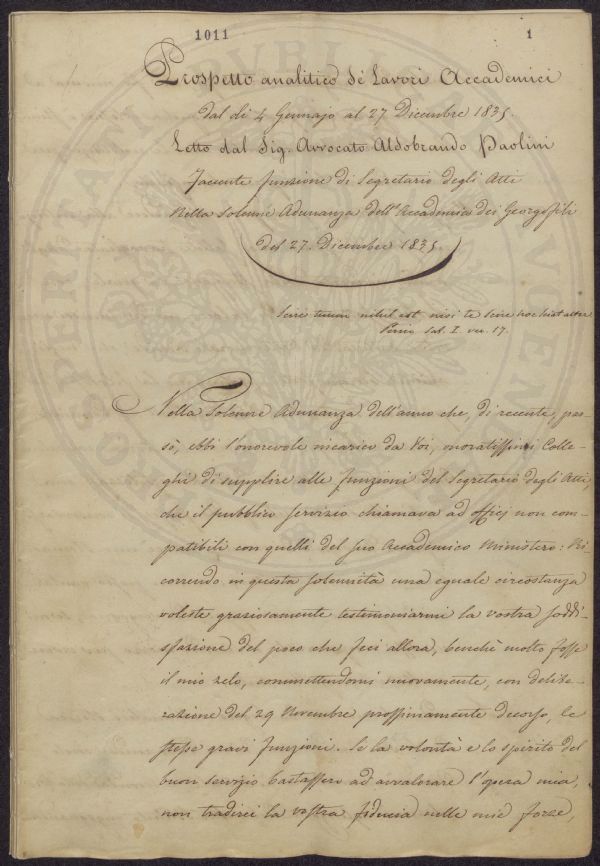 1011
1
Prospetto analitico de' Lavori Accademici
dal dì 4 Gennajo al 27 Dicembre 1835.
Letto dal Sig. Avvocato Aldobrando Paolini
Facente funzione di Segretario degli Atti
Nella Solenne Adunanza dell'Accademia dei Georgofili
del 27. Dicembre 1835.
Scire tuum nihil est nisi te scire hoc sciat alter
Persio Sat. I. ver. 17.
Nella Solenne Adunanza dell'anno che, di recente, pas-
sò, ebbi l'onorevole incarico da Voi, onoratissimi Colle-
ghi di supplire alle funzioni del Segretario degli Atti,
che il pubblico servizio chiamava ad officj non com-
patibili con quelli del suo Accademico Ministero: Ri
correndo in questa solennità una eguale circostanza
voleste graziosamente testimoniarmi la vostra soddi-
sfazione del poco che feci allora, benchè molto fosse
il mio zelo, commettendomi nuovamente, con delibe-
razione del 29 Novembre prossimamente decorso, le
stesse gravi funzioni. Se la volontà e lo spirito del
buon servizio bastassero ad avvalorare l'opera mia,
non tradirei la vostra fiducia nelle mie forze,
PROSPERITATI PUBLICAE